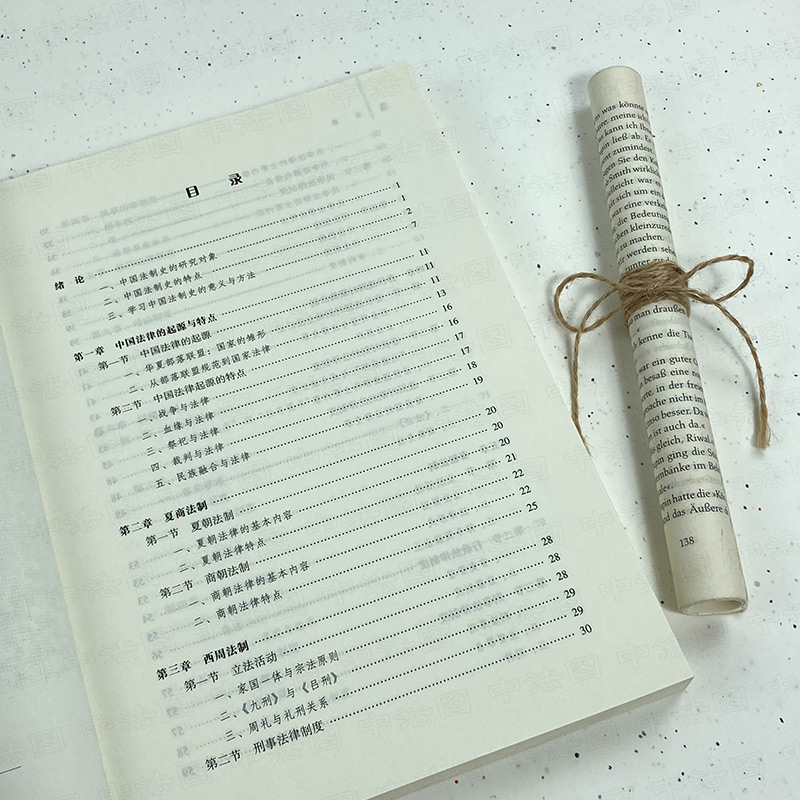 目 录
绪 论 1
一、中国法制史的研究对象 1
二、中国法制史的特点 2
三、学习中国法制史的意义与方法 7
第一章 中国法律的起源与特点 11
第一节 中国法律的起源 11
一、华夏部落联盟：国家的雏形 11
二、从部落联盟规范到国家法律 13
第二节 中国法律起源的特点 16
一、战争与法律 16
二、血缘与法律 17
三、祭祀与法律 17
四、裁判与法律 18
五、民族融合与法律 19
第二章 夏商法制 20
第一节 夏朝法制 20
一、夏朝法律的基本内容 20
二、夏朝法律特点 21
第二节 商朝法制 22
一、商朝法律的基本内容 22
二、商朝法律特点 25
第三章 西周法制 28
第一节 立法活动 28
一、家国一体与宗法原则 28
二、《九刑》与《吕刑》 29
三、周礼与礼刑关系 29
第二节 刑事法律制度 30
was könnte
meine ich
kann ich
ließ ab.
zumindest
Sie den
Smith wirklich
war
sich um
war eine
die Bedeutung
kleinzureden
zu machen.
werden
man draußen
kenne die
war ein guter
besaß eine
in der
nicht im
besser. Da
ist auch da.«
gleich,
ging die
im
hatte die
und das Äußere
138